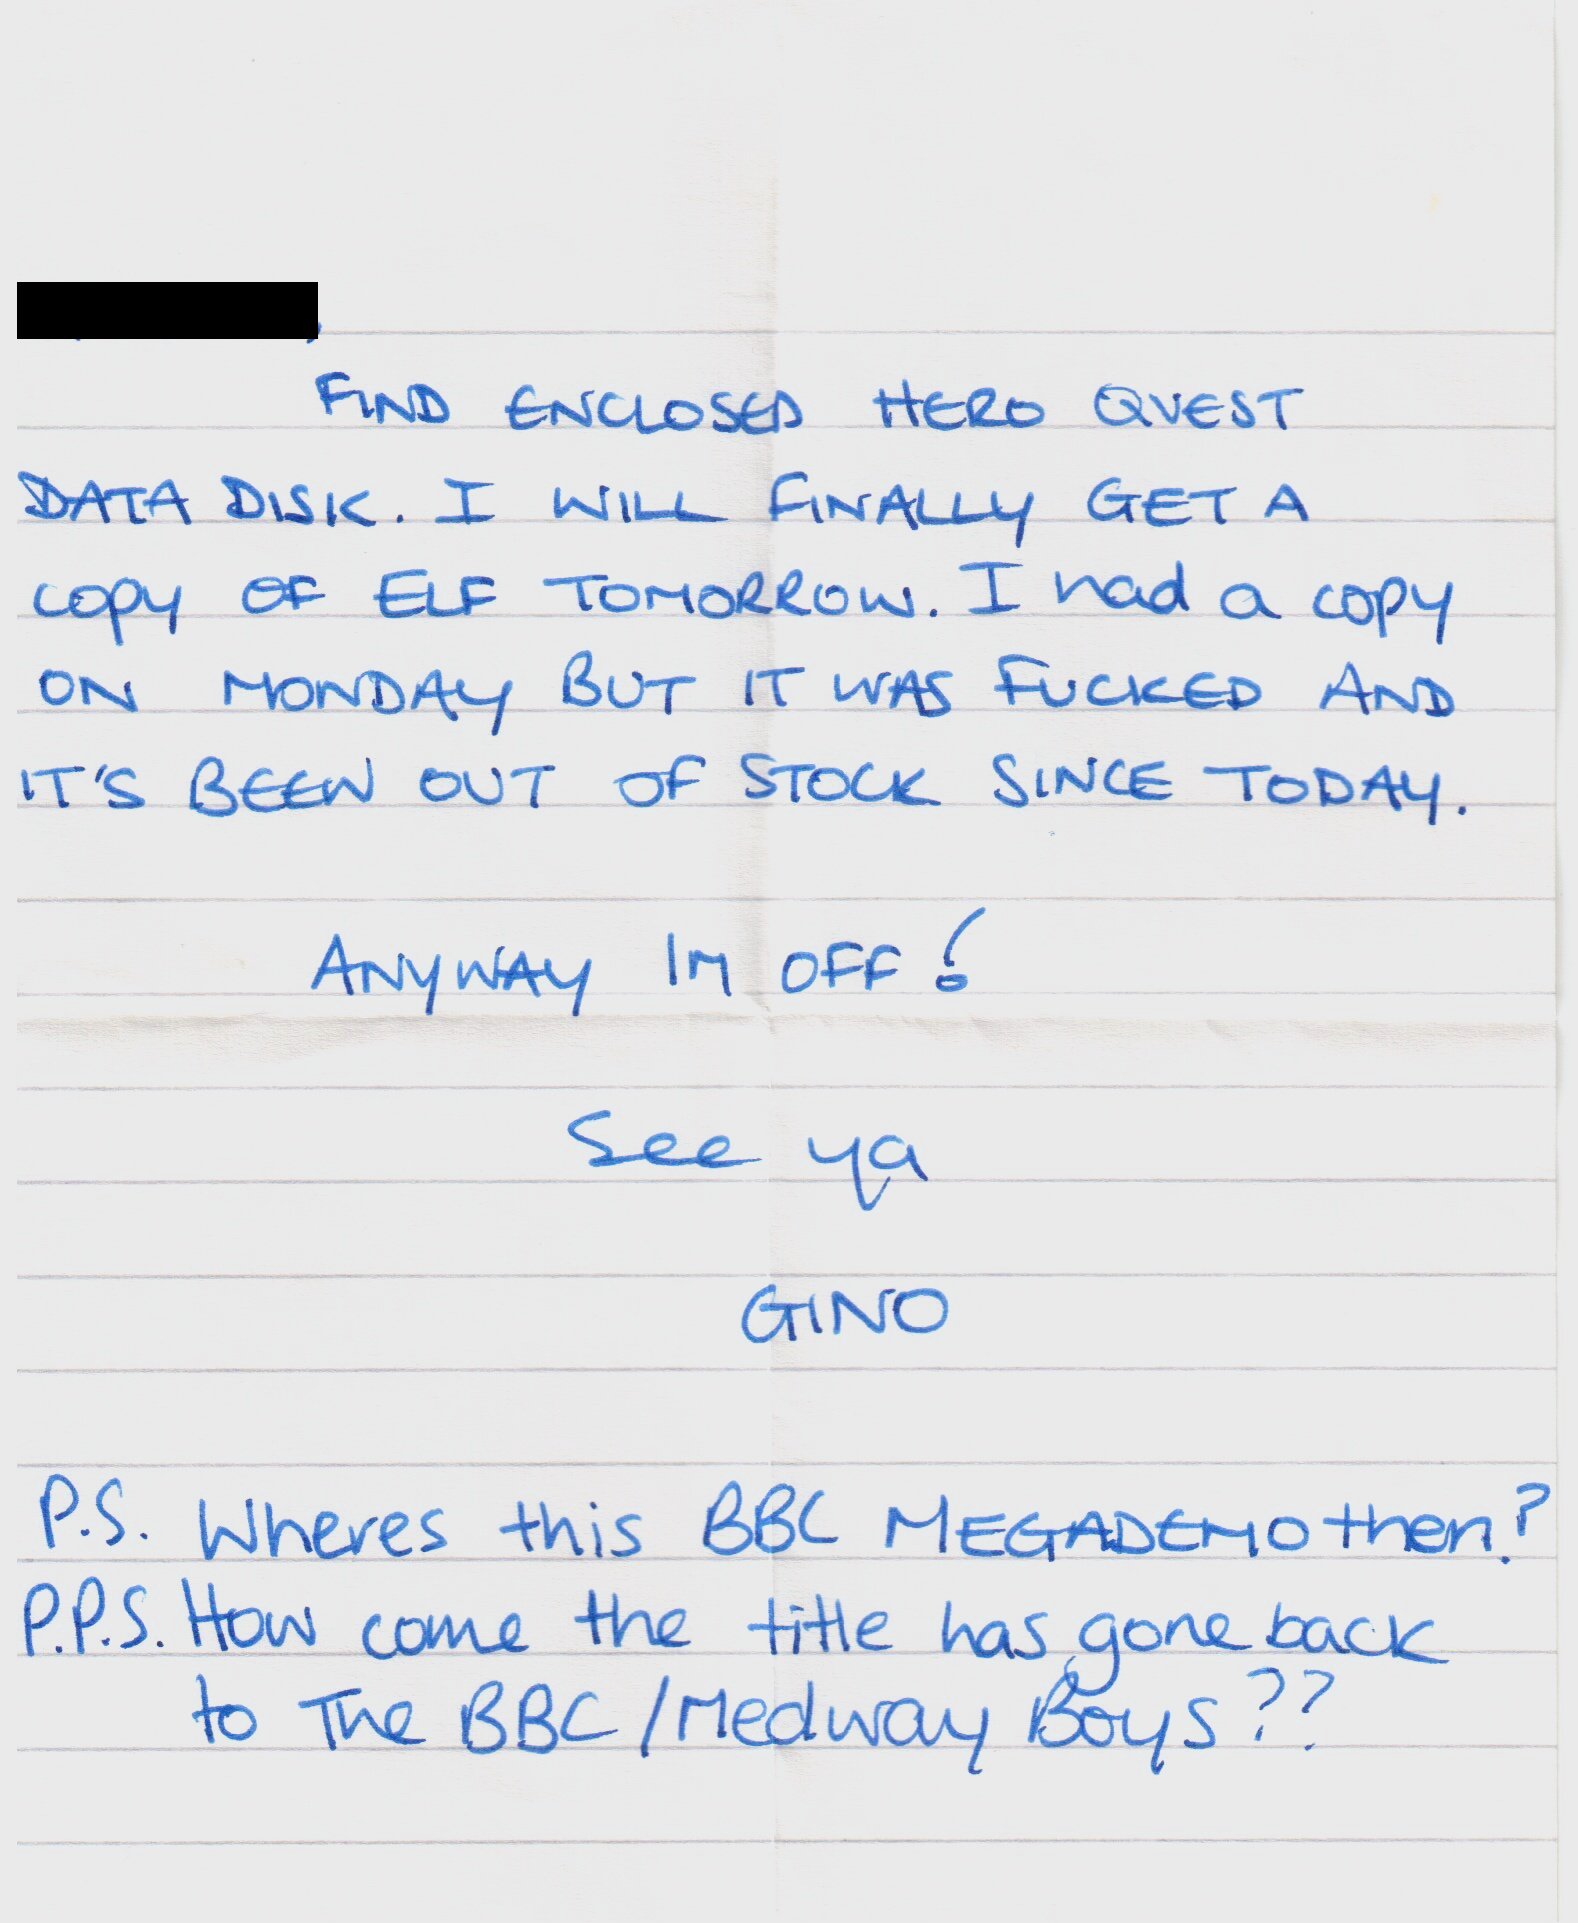 FIND ENCLOSED HERO QUEST
DATA DISK. I WILL FINALLY GET A
COPY OF ELF TOMORROW. I had a copy
ON MONDAY BUT IT WAS FUCKED AND
IT'S BEEN OUT OF STOCK SINCE TODAY.
ANYWAY IM OFF!
See ya
GINO
P.S. Wheres this BBC MEGADEMO then?
P.P.S. How come the title has gone back
to The BBC/Medway Boys??